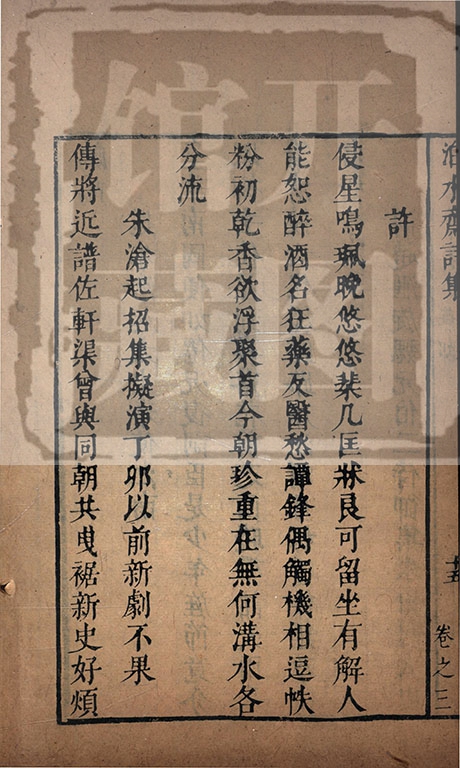 泊水齋詩集
卷之三
十五
許
侵星鳴珮晚悠悠棐几匡牀良可留坐有解人
能恕醉酒名狂藥反醫愁譚鋒偶觸機相逗帙
粉初乾香欲浮聚首今朝珍重在無何溝水各
分流
朱滄起招集擬演丁卯以前新劇不果
傳將近譜佐軒渠曾與同朝共曳裾新史好煩